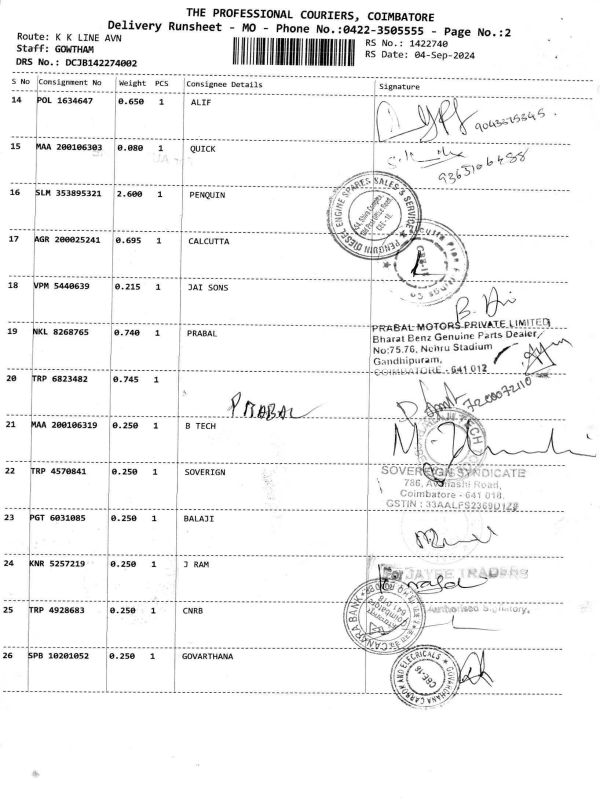 THE PROFESSIONAL COURIERS, COIMBATORE
Delivery Runsheet - MO - Phone No.:0422-3505555 - Page No.:2
Route: K K LINE AVN
RS No.: 1422740
Staff: GOWTHAM
RS Date: 04-Sep-2024
DRS No.: DCJB142274002
S No Consignment No Weight PCS Consignee Details Signature
14 POL 1634647 0.650 1 ALIF
15 MAA 200106303 0.080 1 QUICK
9363106488
16 SLM 353895321 2.600 1 PENQUIN
PENGUIN DIESEL ENGINE SPARES SALES & SERVICE
17 AGR 200025241 0.695 1 CALCUTTA
18 VPM 5440639 0.215 1 JAI SONS
19 NKL 8268765 0.740 1 PRABAL
PRABAL MOTORS PRIVATE LIMITED
Bharat Benz Genuine Parts Dealer
No:75.76, Nehru Stadium
Gandhipuram,
COIMBATORE - 641 012
20 TRP 6823482 0.745 1
PRABAL
7200072110
21 MAA 200106319 0.250 1 B TECH
22 TRP 4570841 0.250 1 SOVERIGN
SOVEREIGN SYNDICATE
786, Avinashi Road,
Coimbatore - 641 018.
23 PGT 6031085 0.250 1 BALAJI
24 KNR 5257219 0.250 1 J RAM
JAYEE TRADERS
25 TRP 4928683 0.250 1 CNRB
Authorised Signatory.
CANARA BANK
26 SPB 10201052 0.250 1 GOVARTHANA
GOVARDHANA CARBON AND ELECRICALS
CBE-18